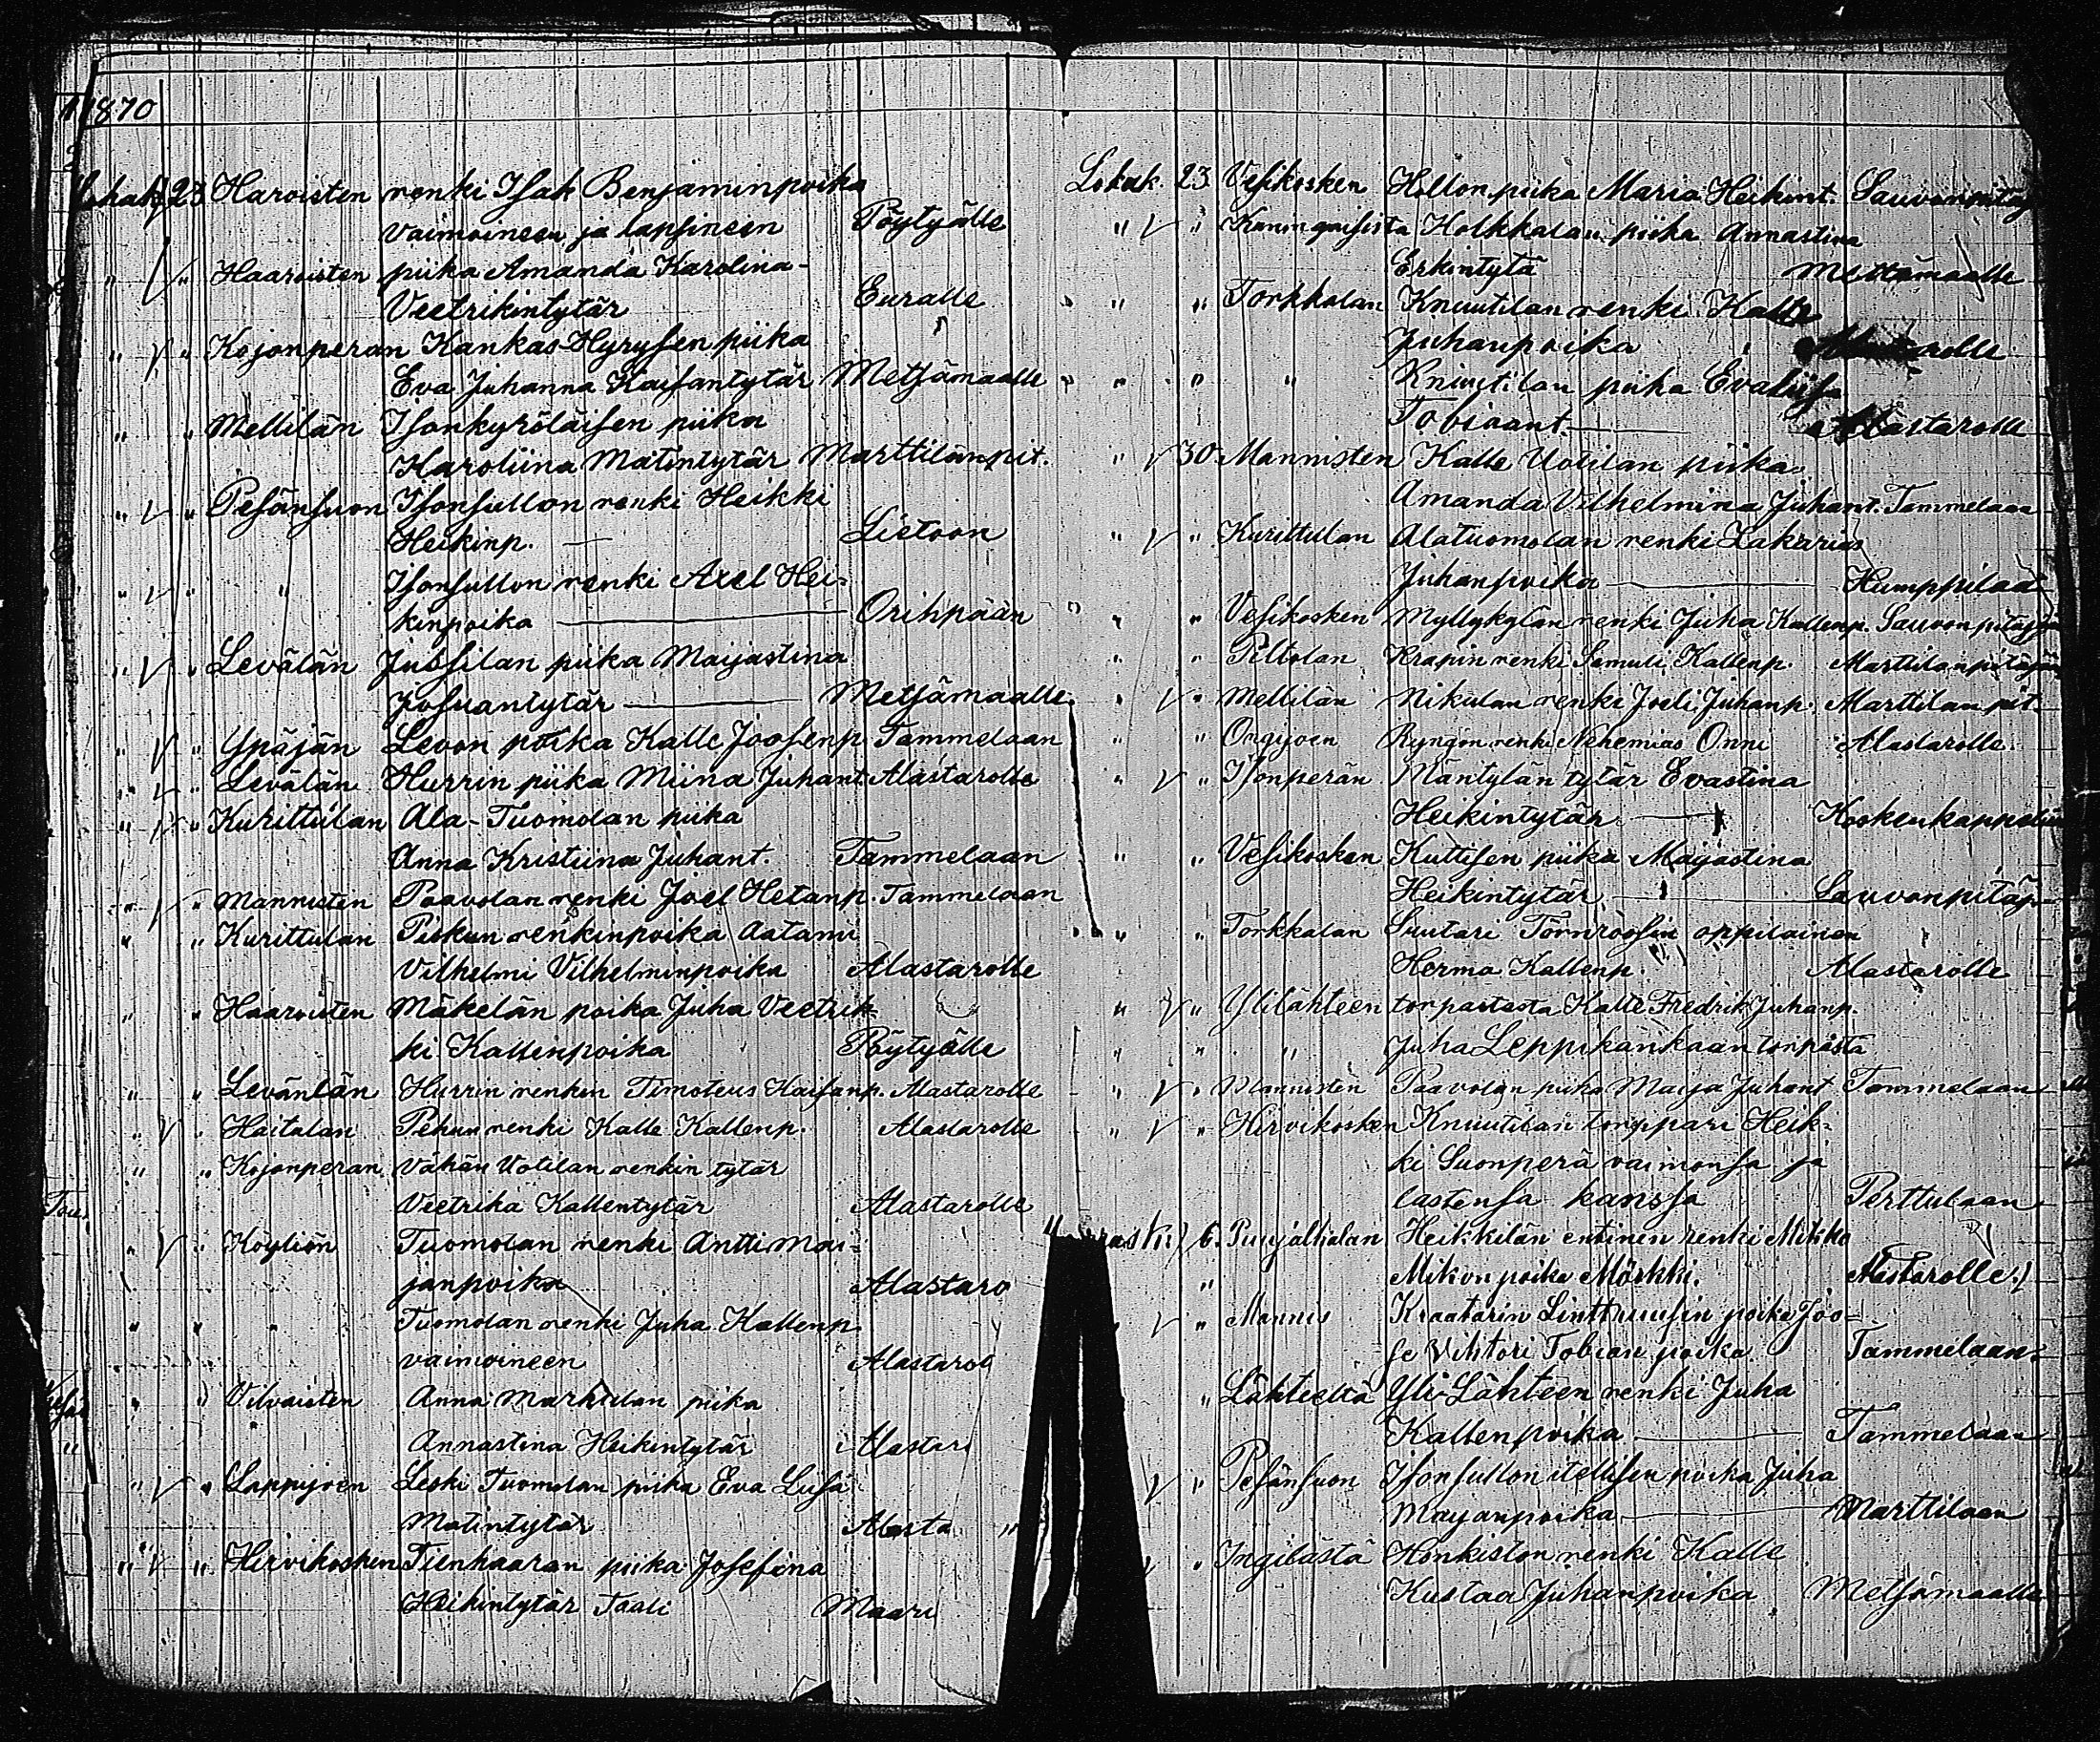 1870
Lokak. 23 Haroisten renki Isak Benjaminpoika
vaimoineen ja lapsineen Pöytyälle
" " Haaroisten piika Amanda Karolina-
Veetrikintytär Euralle
" " Kojonperan Kankas-Hyrysen piika
Eva Juhanna Kaisantytär Metsämaalle
" " Mellilän Isonkyröläisen piika
Karoliina Matintytär Marttilan pit.
" " Pesänsuon Isonsullon renki Heikki
Heikinp. Lietoon
" " " Isonsullon renki Axel Hei-
kinpoika Orihpään
" " Levälän Jussilan piika Maijastina
Josuantytär Metsämaalle
" " Ypäjän Levon poika Kalle Joosenp Tammelaan
" " Levälän Hurrin piika Miina Juhant. Alastarolle
" " Kurittulan Ala-Tuomolan piika
Anna Kristiina Juhant. Tammelaan
" " Mannisten Paavolan renki Joel Hetanp. Tammelaan
" " Kurittulan Piskun renkinpoika Aatami
Vilhelmi Vilhelminpoika Alastarolle
" " Haaroisten Mäkelän poika Juha Veetrik-
ki Kallenpoika Pöytyälle
" " Levänlän Hurrin renkin Timoteus Kaisanp. Alastarolle
" " Haitalan Pehun renki Kalle Kallenp. Alastarolle
" " Kojonperan Vähän Uotilan renkin tytär
Veetrika Kallentytär Alastarolle
" " Köyliön Tuomolan renki Antti Mai-
janpoika Alastaro
" " " Tuomolan renki Juha Kallenp
vaimoineen Alastarol
" " Vilvaisten Anna Markulan piika
Annastina Heikintytär Alastar
" " Loppijoen Leski Tuomolan piika Eva Liisa
Matintytär Alasta
" " Hirvikosken Tienhaaran piika Josefina
Heikintytär Taali Maari
Lokak. 23 Vesikosken Hollon piika Maria Heikint. Sauvonpitäj
" " Kaningaisista Holkkalan piika Annastina
Erkintytä Mettämaalle
" " Torkkalan Knuutilan renki Kalle
Juhanpoika Alastarolle
" " " Knuutilan piika Evaliisa
Tobiaant. Alastarolle
" 30 Mannisten Kalle Uotilan piika
Amanda Vilhelmina Juhant. Tammelaan
" " Kurittulan Alatuomolan renki Zakarias
Juhanpoika Humppilaan
" " Vesikosken Myllykylän renki Juha Kallenp. Sauvon pitäjää
" " Piltolan Krapin renki Samuli Kallenp. Marttilanpitäjää
" " Mellilän Nikulan renki Joeli Juhanp. Marttilan pit.
" " Orijoen Ryngön renki Nehemias Onni Alastarolle
" " Isonperän Mäntylän tytär Evastina
Heikintytär Koskenkappelin
" " Vesikosken Kuttisen piika Maijastina
Heikintytär Sauvonpitäj
" " Torkkalan Suutari Törnroosin oppilainen
Herma Kallenp. Alastarolle
" " Ylilähteen torpastasta Kalle Fredrik Juhanp.
" " " Juha Leppikankaan torpasta
" " Mannisten Paavolan piika Maija Juhant Tammelaan
" " Hirvikosken Knuutilan torppari Heik-
ki Suonperä vaimonsa ja
lastensa kanssa Perttulaan
6. Punjalkalan Heikkilän entinen renki Mikko
" Mikon poika Mörkki. Alastarolle
" Mannis Kraatarin Linttruusin poika Joo-
se Vihtori Tobiaan poika Tammelaan
" Lähteeltä Yli-Lähteen renki Juha
Kallenpoika Tammelaan
" Pesänsuon Isonsullon itellisen poika Juha
Maijanpoika Marttilaan
" Ingilästä Honkiston renki Kalle
Kustaa Juhanpoika Metsämaalle